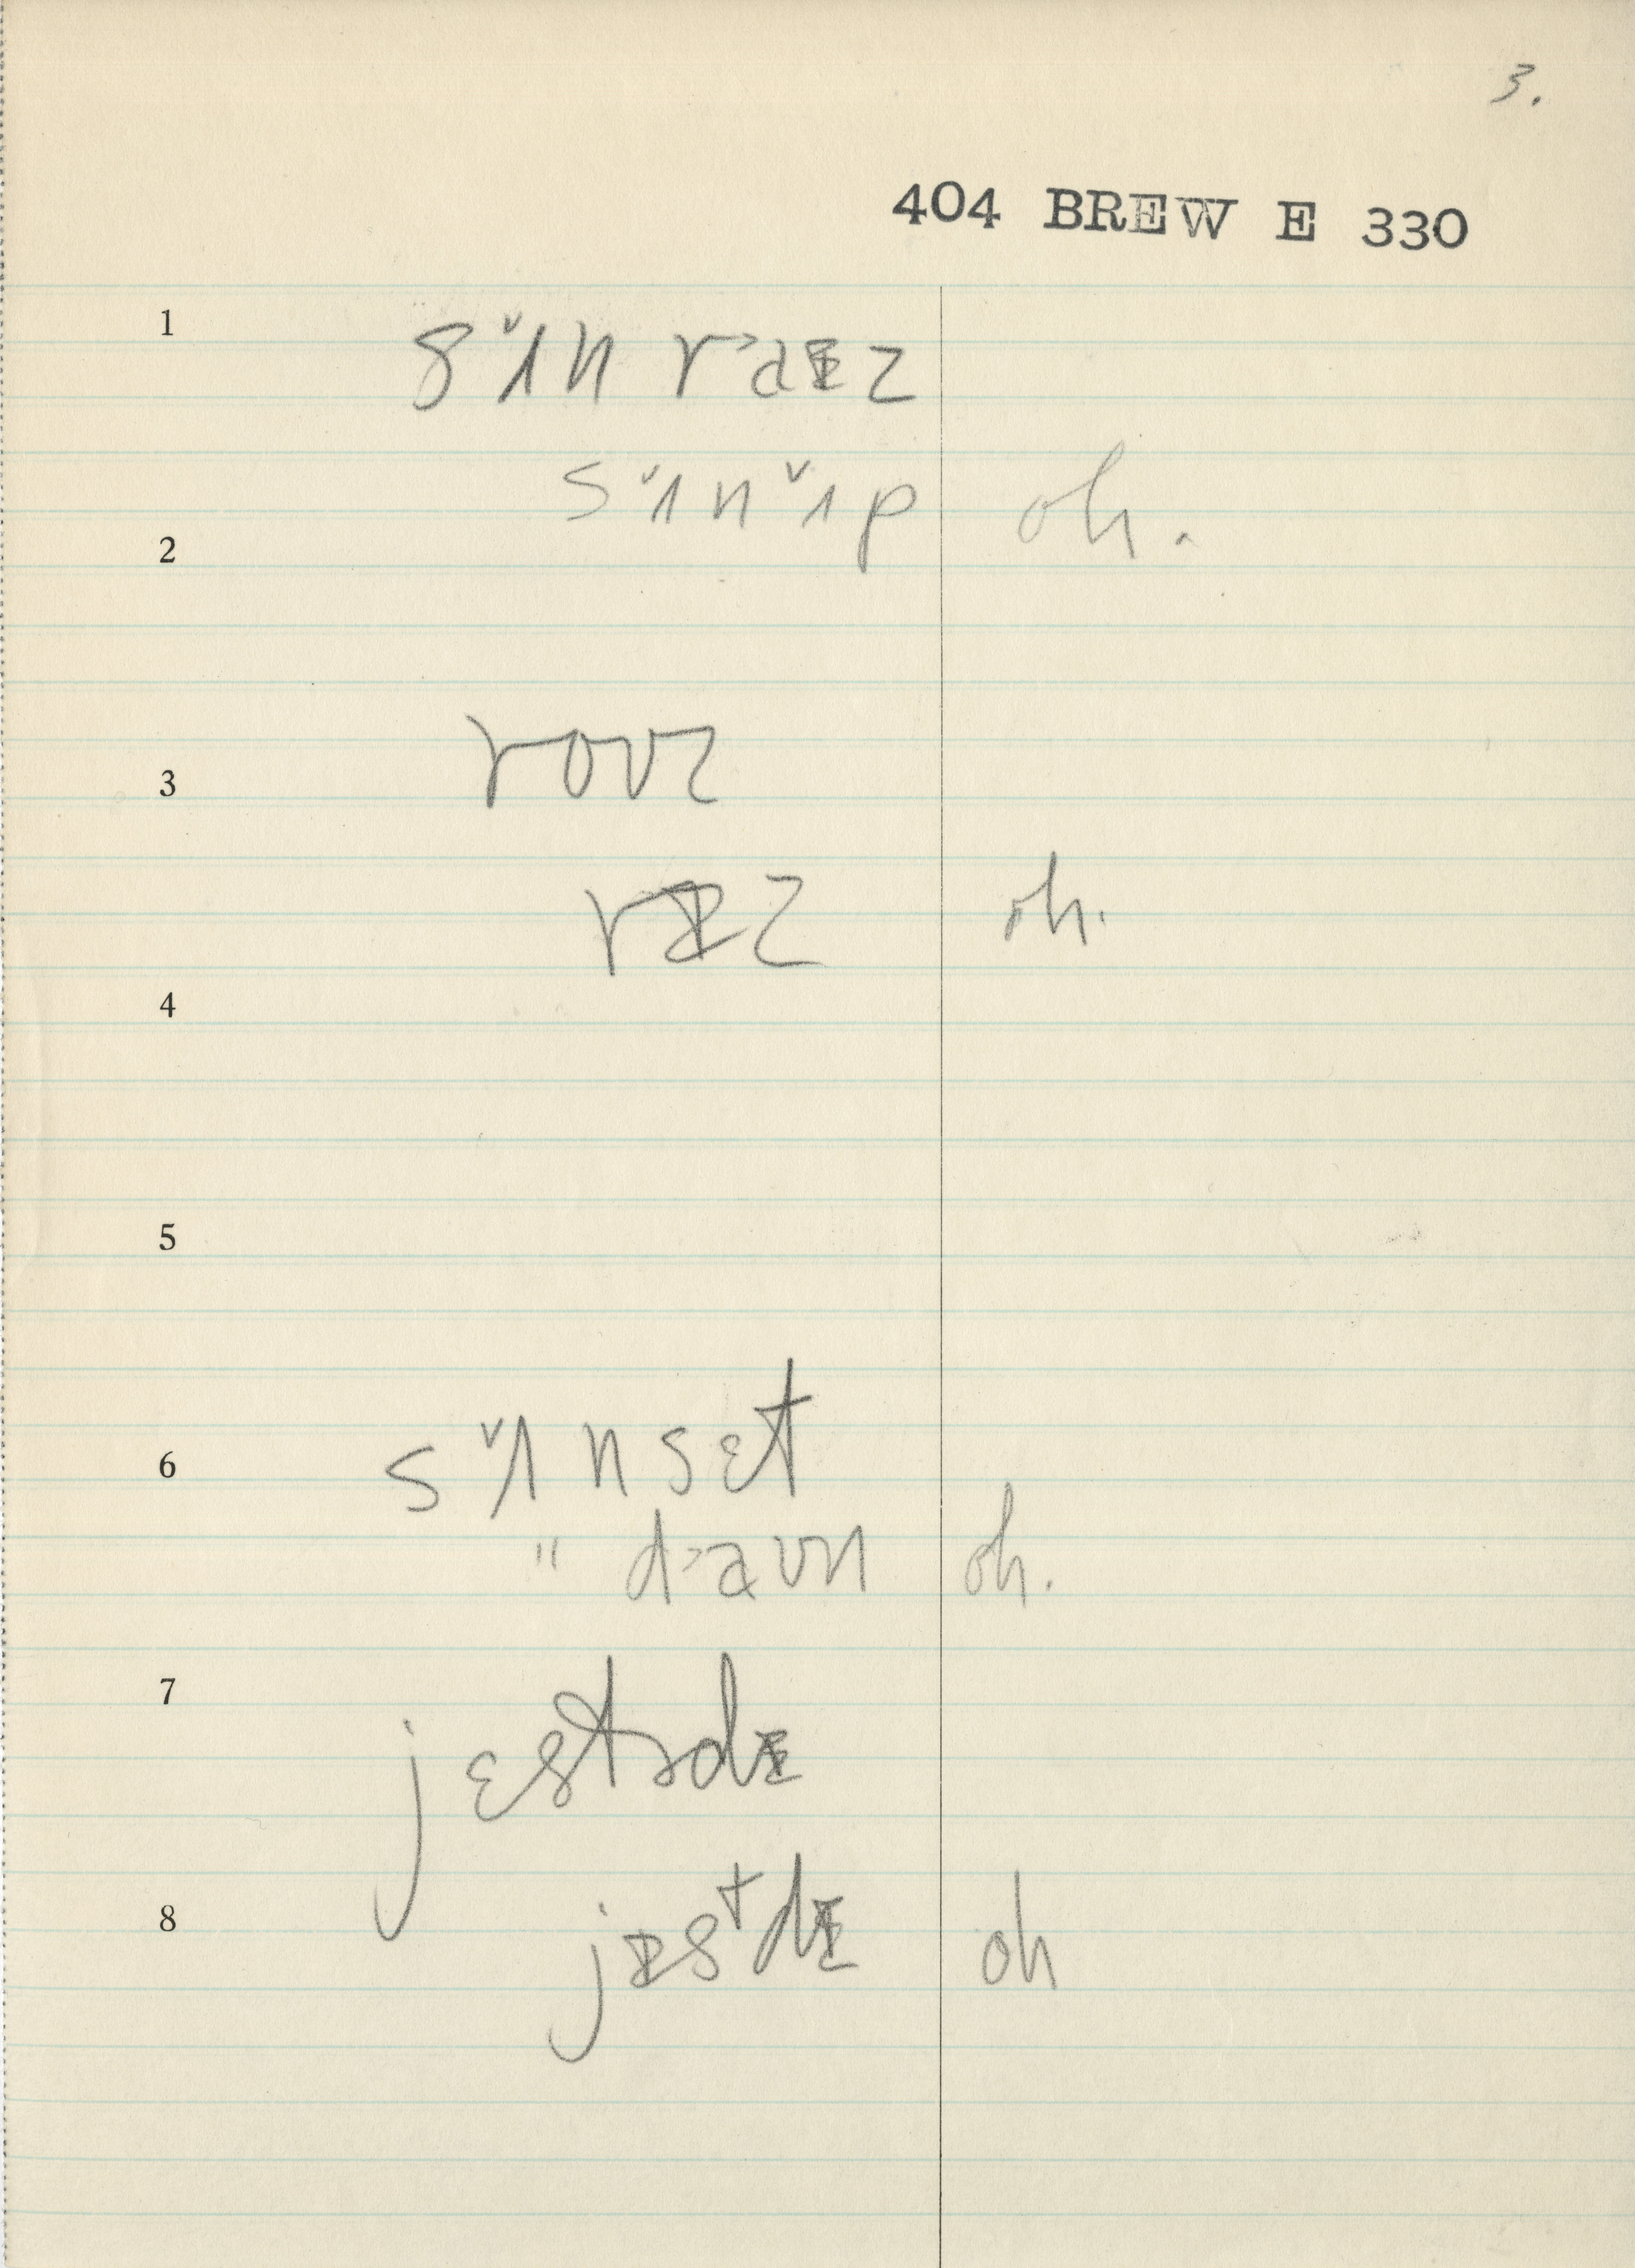 3.
404 BREW E 330
1 sʌ̌n raᵻz
sʌ̌nʌ̌p oh.
2
3 rovz
rᵻz oh.
4
5
6 sʌ̌nsɛt
" daʊn oh.
7 jɛstɚdᵻ
8 jᵻstdᵻ oh